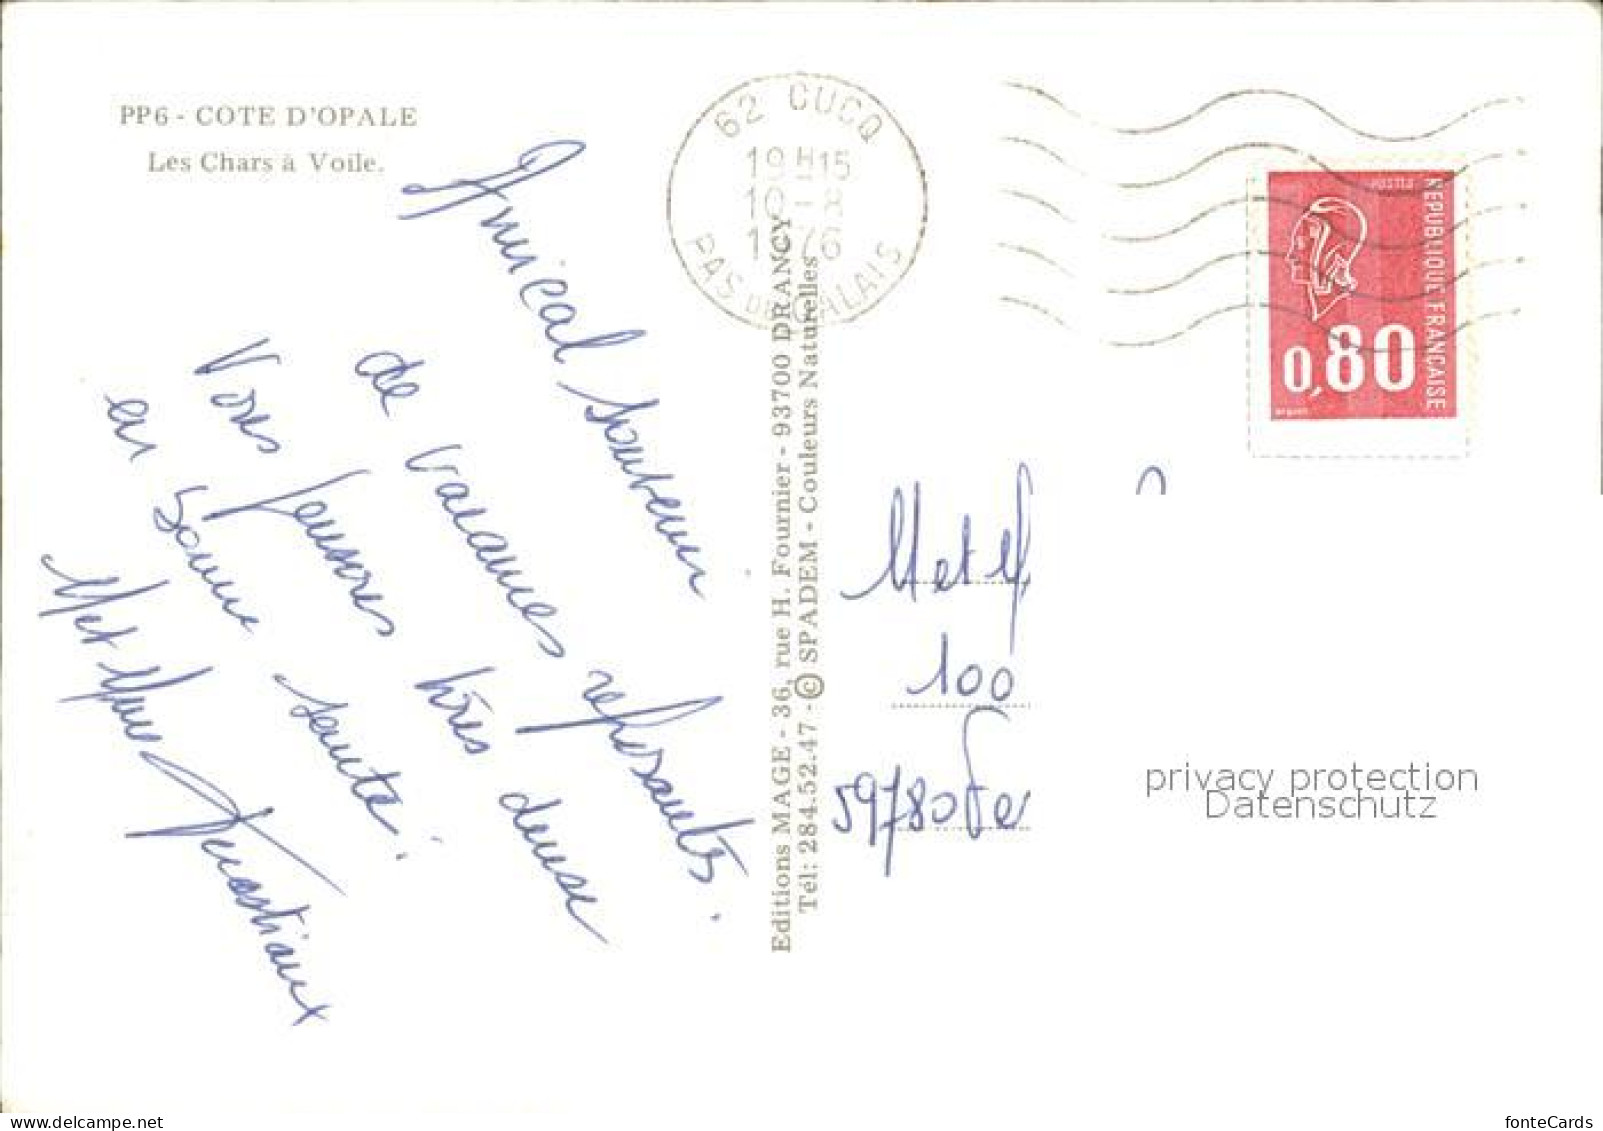 PP6 - COTE D'OPALE
Les Chars à Voile.
Amical Souvenir
de Vacances reposantes.
Vous pensons très
en bonne santé.
Mr et Mme
62 CUCQ
19H15
1976
PAS DE CALAIS
Editions MAGE - 36, rue H. Fournier - 93700 DRANCY
Tél: 284.52.47 - © SPADEM - Couleurs Naturelles
POSTES
REPUBLIQUE FRANÇAISE
0,80
Mr et M
100
59780
privacy protection
Datenschutz
delcampe.net
fonteCards